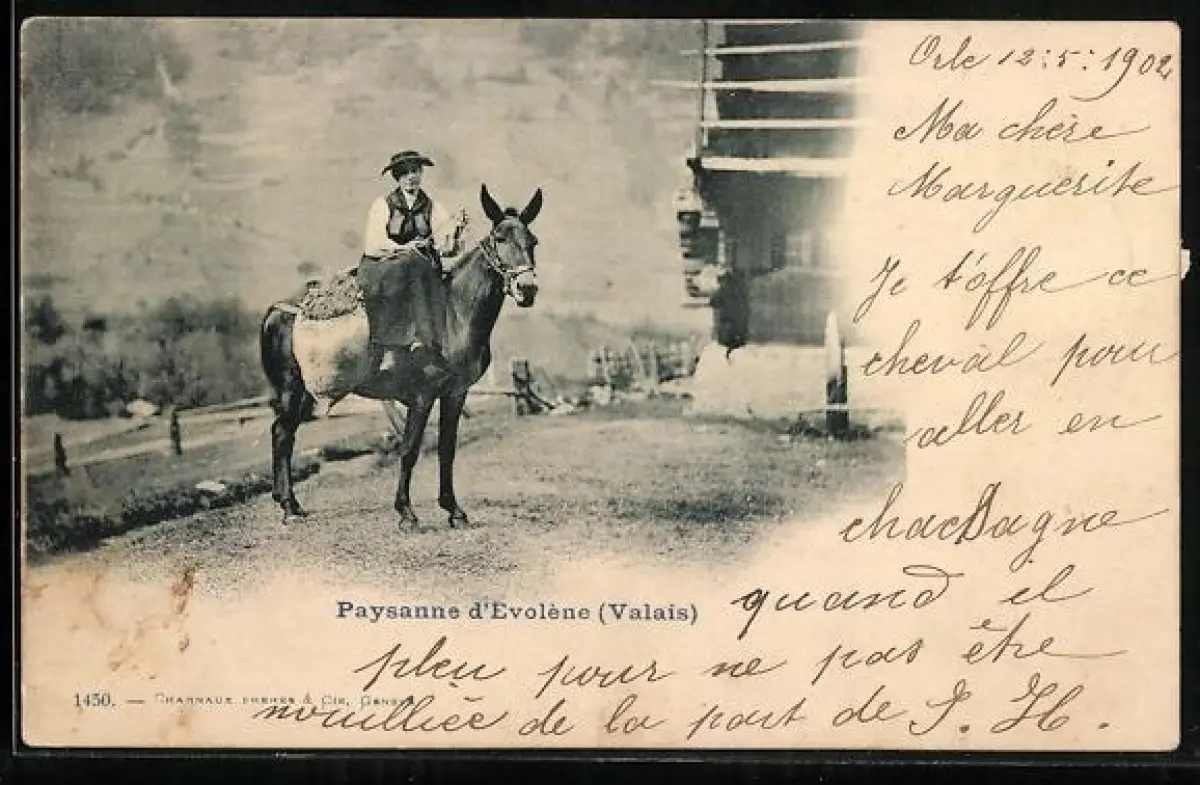 Orbe 12:5:1902
Ma chère
Marguerite
Je t'offre ce
cheval pour
aller en
quand il
pleu pour ne pas être
mouillée de la part de J. H.
Paysanne d'Evolène (Valais)
1450. — CHARNAUX FRÈRES & CIE, GENÈVE